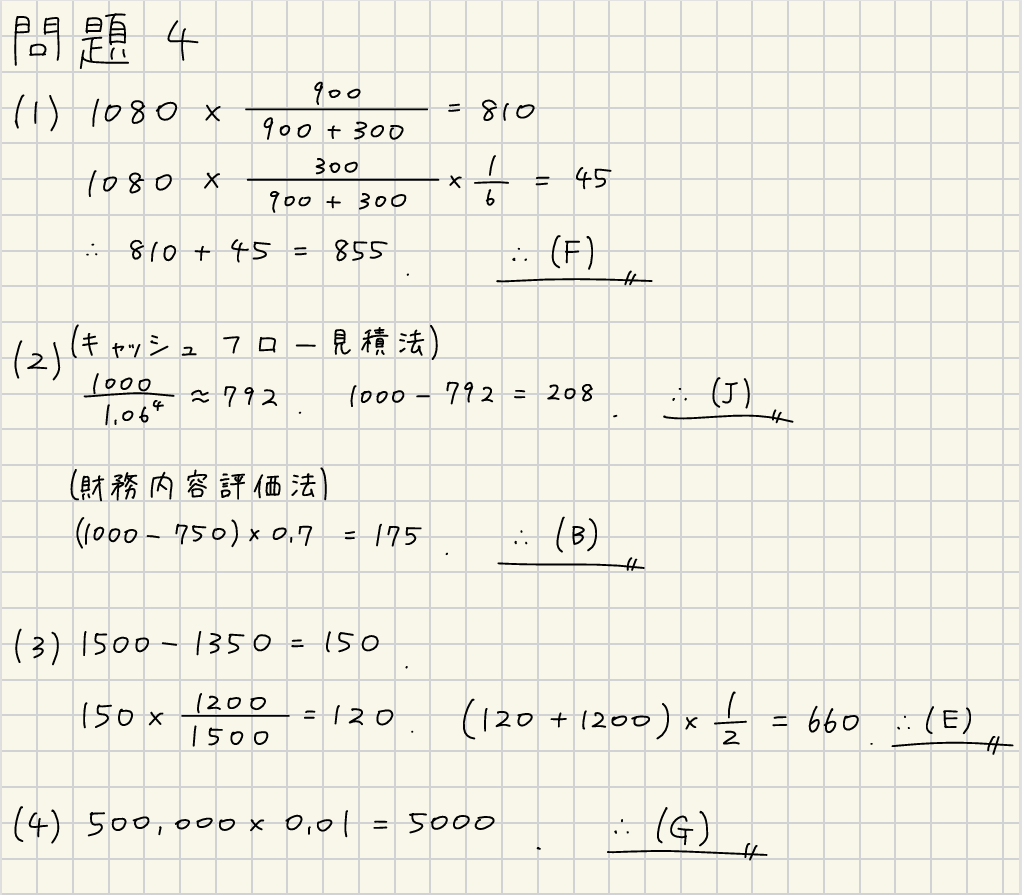 問題 4
(1) 1080 × 900/(900 + 300) = 810
1080 × 300/(900 + 300) × 1/6 = 45
∴ 810 + 45 = 855. ∴ (F)
(2) (キャッシュフロー見積法)
1000/1.06⁴ ≈ 792. 1000 - 792 = 208. ∴ (J)
(財務内容評価法)
(1000 - 750) × 0.7 = 175. ∴ (B)
(3) 1500 - 1350 = 150.
150 × 1200/1500 = 120. (120 + 1200) × 1/2 = 660. ∴ (E)
(4) 500,000 × 0.01 = 5000. ∴ (G)